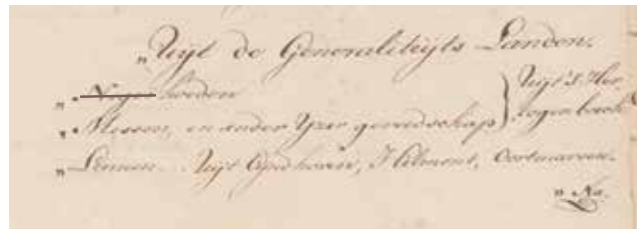 „ Uijt de Generaliteijts Landen.
„ hoeden
„ Messen, en ander Yzer gereedschap } Uijt 's Her
togenbosch
„ Linnen. Uijt Eijndhoven, Helmont,
„ Na.